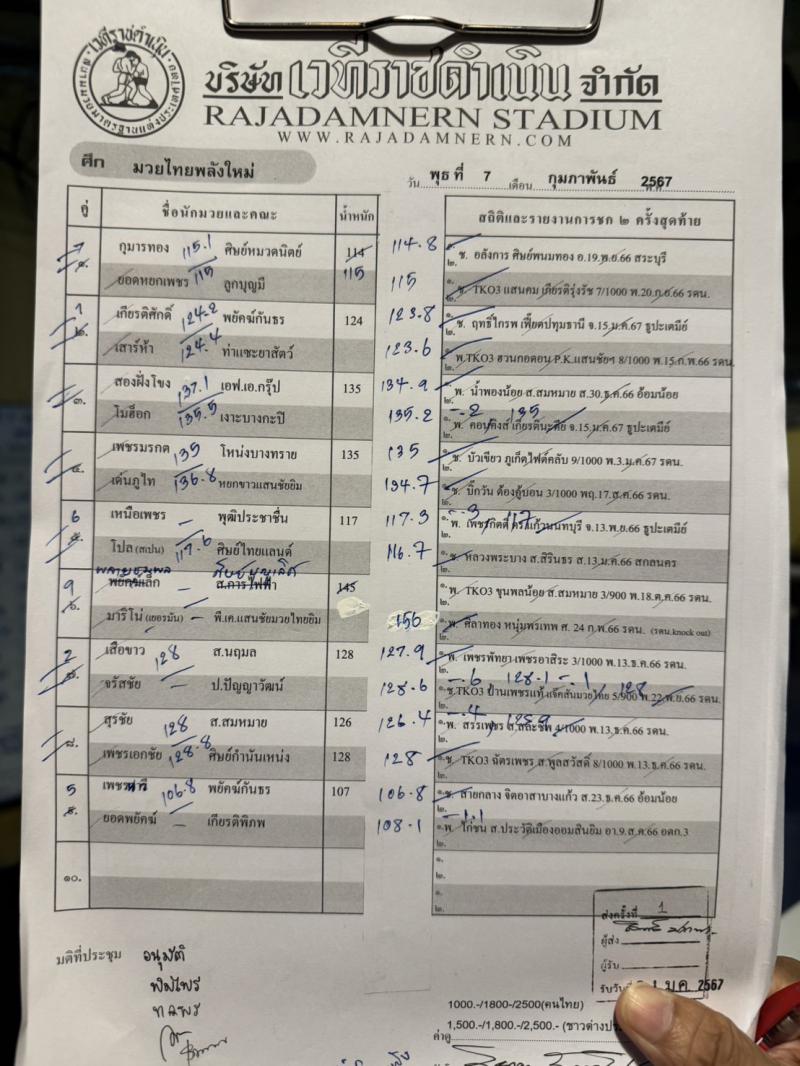 เวทีราชดำเนิน
บริษัท เวทีราชดำเนิน จำกัด
RAJADAMNERN STADIUM
WWW.RAJADAMNERN.COM
ศึก มวยไทยพลังใหม่
วัน พุธ ที่ 7 เดือน กุมภาพันธ์ 2567
คู่ ชื่อนักมวยและคณะ น้ำหนัก สถิติและรายงานการชก ๒ ครั้งสุดท้าย
7 กุมารทอง 115.1 ศิษย์หมวดนิตย์ 114 114.8 ๑. ช. อลังการ ศิษย์พนมทอง อ.19.พ.ย.66 สระบุรี
๑. ยอดหยกเพชร 115 ลูกบุญมี 115 115 ช. TKO3 แสนคม เกียรติรุ่งรัช 7/1000 พ.20.ก.ย.66 รดน.
1 เกียรติศักดิ์ 124.2 พยัคฆ์กันธร 124 123.8 ช. ฤทธิ์ไกรพ เฟี้ยตปทุมธานี จ.15.ม.ค.67 ธูปะเตมีย์
๒. เสาร์ห้า 124.4 ท่าแซะยาสัตว์ 123.6 พ.TKO3 ฮวนกอดอน P.K.แสนชัยฯ 8/1000 พ.15.ก.พ.66 รดน.
สองฝั่งโขง 137.1 เอฟ.เอ.กรุ๊ป 135 134.9 พ. น้ำพองน้อย ส.สมหมาย ส.30.ธ.ค.66 อ้อมน้อย
๓. โมฮ็อก 135.5 เงาะบางกะปิ 135.2 -.2 135 พ. คอนคิงส์ เกียรตินะศัย จ.15.ม.ค.67 ธูปะเตมีย์
เพชรมรกต 135 โหน่งบางทราย 135 135 ช. บัวเขียว ภูเก็ตไฟต์คลับ 9/1000 พ.3.ม.ค.67 รดน.
๔. เด่นภูไท 136.8 หยกขาวแสนชัยยิม 134.7 ช. บิ๊กวัน ต้องตู้บอน 3/1000 พฤ.17.ส.ค.66 รดน.
6 เหนือเพชร - พุฒิประชาชื่น 117 117.3 -.3 117 พ. เพชรกิตติ์ จ.13.พ.ย.66 ธูปะเตมีย์
๕. โปล (สเปน) 117.6 ศิษย์ไทยแลนด์ 116.7 ช. หลวงพระบาง ส.สิรินธร ส.13.ม.ค.66 สกลนคร
9 พยัคฆเล็ก - ส.การไฟฟ้า 145 พ. TKO3 ขุนพลน้อย ส.สมหมาย 3/900 พ.18.ต.ค.66 รดน.
๖. มาริโน่ (เยอรมัน) - พี.เค.แสนชัยมวยไทยยิม 156 พ. ศิลาทอง หนุ่มพรเทพ ศ. 24 ก.พ.66 รดน. (รดน.knock out)
2 เสือขาว 128 ส.นฤมล 128 127.9 พ. เพชรพัทยา เพชรอาสิระ 3/1000 พ.13.ธ.ค.66 รดน.
๗. จรัสชัย - ป.ปัญญาวัฒน์ 128.6 -.6 128.1 -.1 128 ช.TKO3 ป่านเพชรแท้ง เจ๊คสันมวยไทย 5/900 พ.22.พ.ย.66 รดน.
สุรชัย 128 ส.สมหมาย 126 126.4 -.4 พ. สรรเพชร ส.สละชีพ 4/1000 พ.13.ธ.ค.66 รดน.
๘. เพชรเอกชัย 128.8 ศิษย์กำนันเหน่ง 128 128 ช. TKO3 ฉัตรเพชร ส.พูลสวัสดิ์ 8/1000 พ.13.ธ.ค.66 รดน.
5 106.8 พยัคฆ์กันธร 107 106.8 ช. สายกลาง จิตอาสาบางแก้ว ส.23.ธ.ค.66 อ้อมน้อย
๙. ยอดพยัคฆ์ - เกียรติพิภพ 108.1 -1.1 พ. ไก่ชน ส.ประวัติเมืองออมสินยิม อา.9.ส.ค.66 อตก.3
๑๐. ๑.
๒.
๑.
๒.
มติที่ประชุม อนุมัติ
ส่งครั้งที่ 1
ผู้ส่ง
ผู้รับ
รับวันที่ 3 1 ม.ค. 2567
1000.-/1800-/2500(คนไทย)
1,500.-/1,800.-/2,500.- (ชาวต่างป
ค่าดู